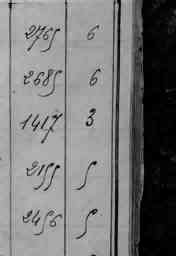 2765 6
2685 6
1417 3
2155 5
2456 5